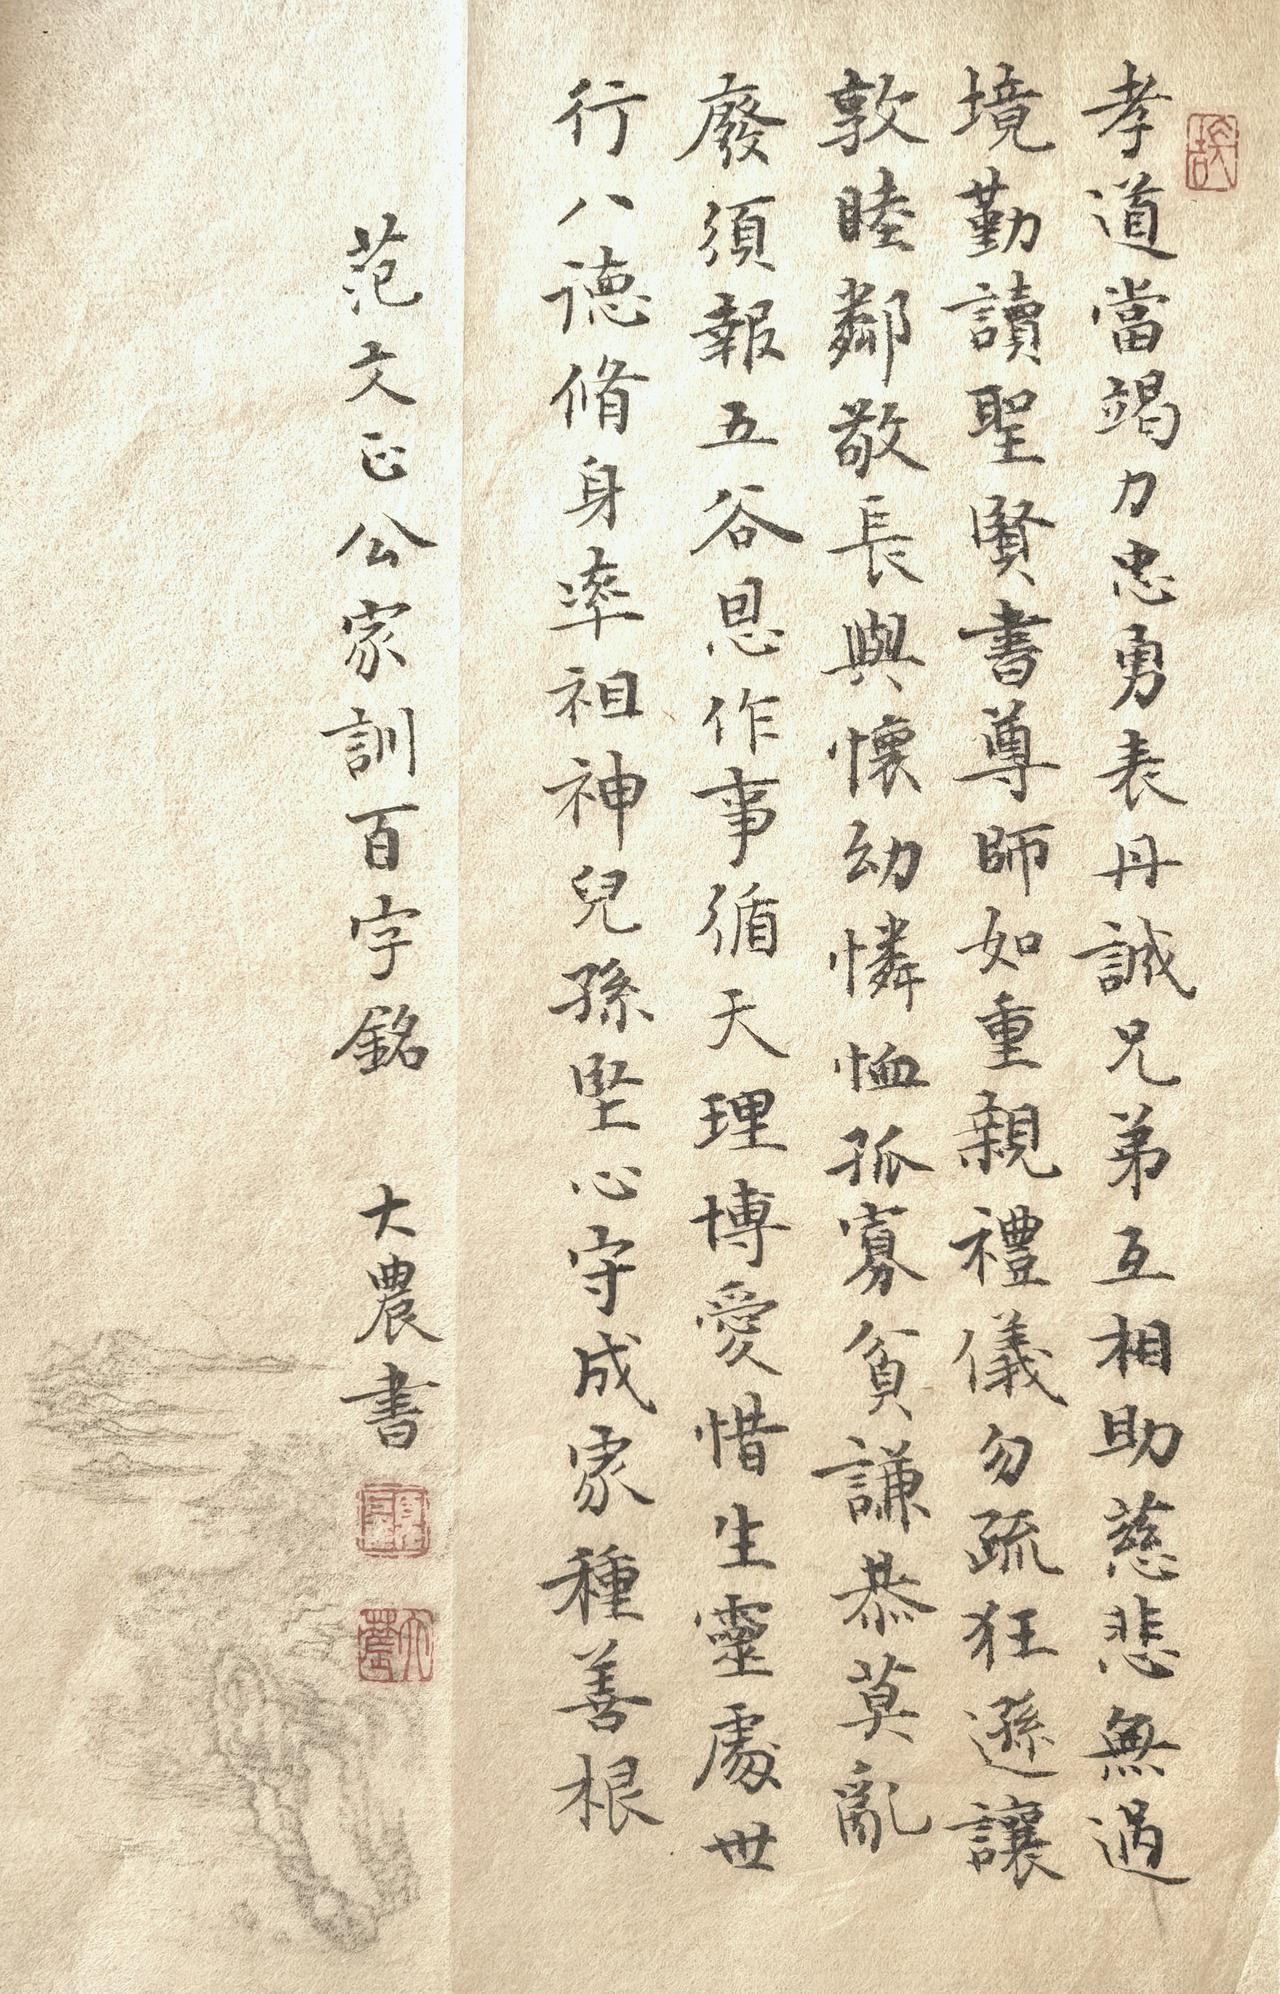 孝道當竭力忠勇表丹誠兄弟互相助慈悲無過
境勤讀聖賢書尊師如重親禮儀勿疏狂遜讓
敦睦鄰敬長與懷幼憐恤孤寡貧謙恭莫亂
廢須報五谷恩作事循天理博愛惜生靈處世
行八德脩身率祖神兒孫堅心守成家種善根
范文正公家訓百字銘 大農書